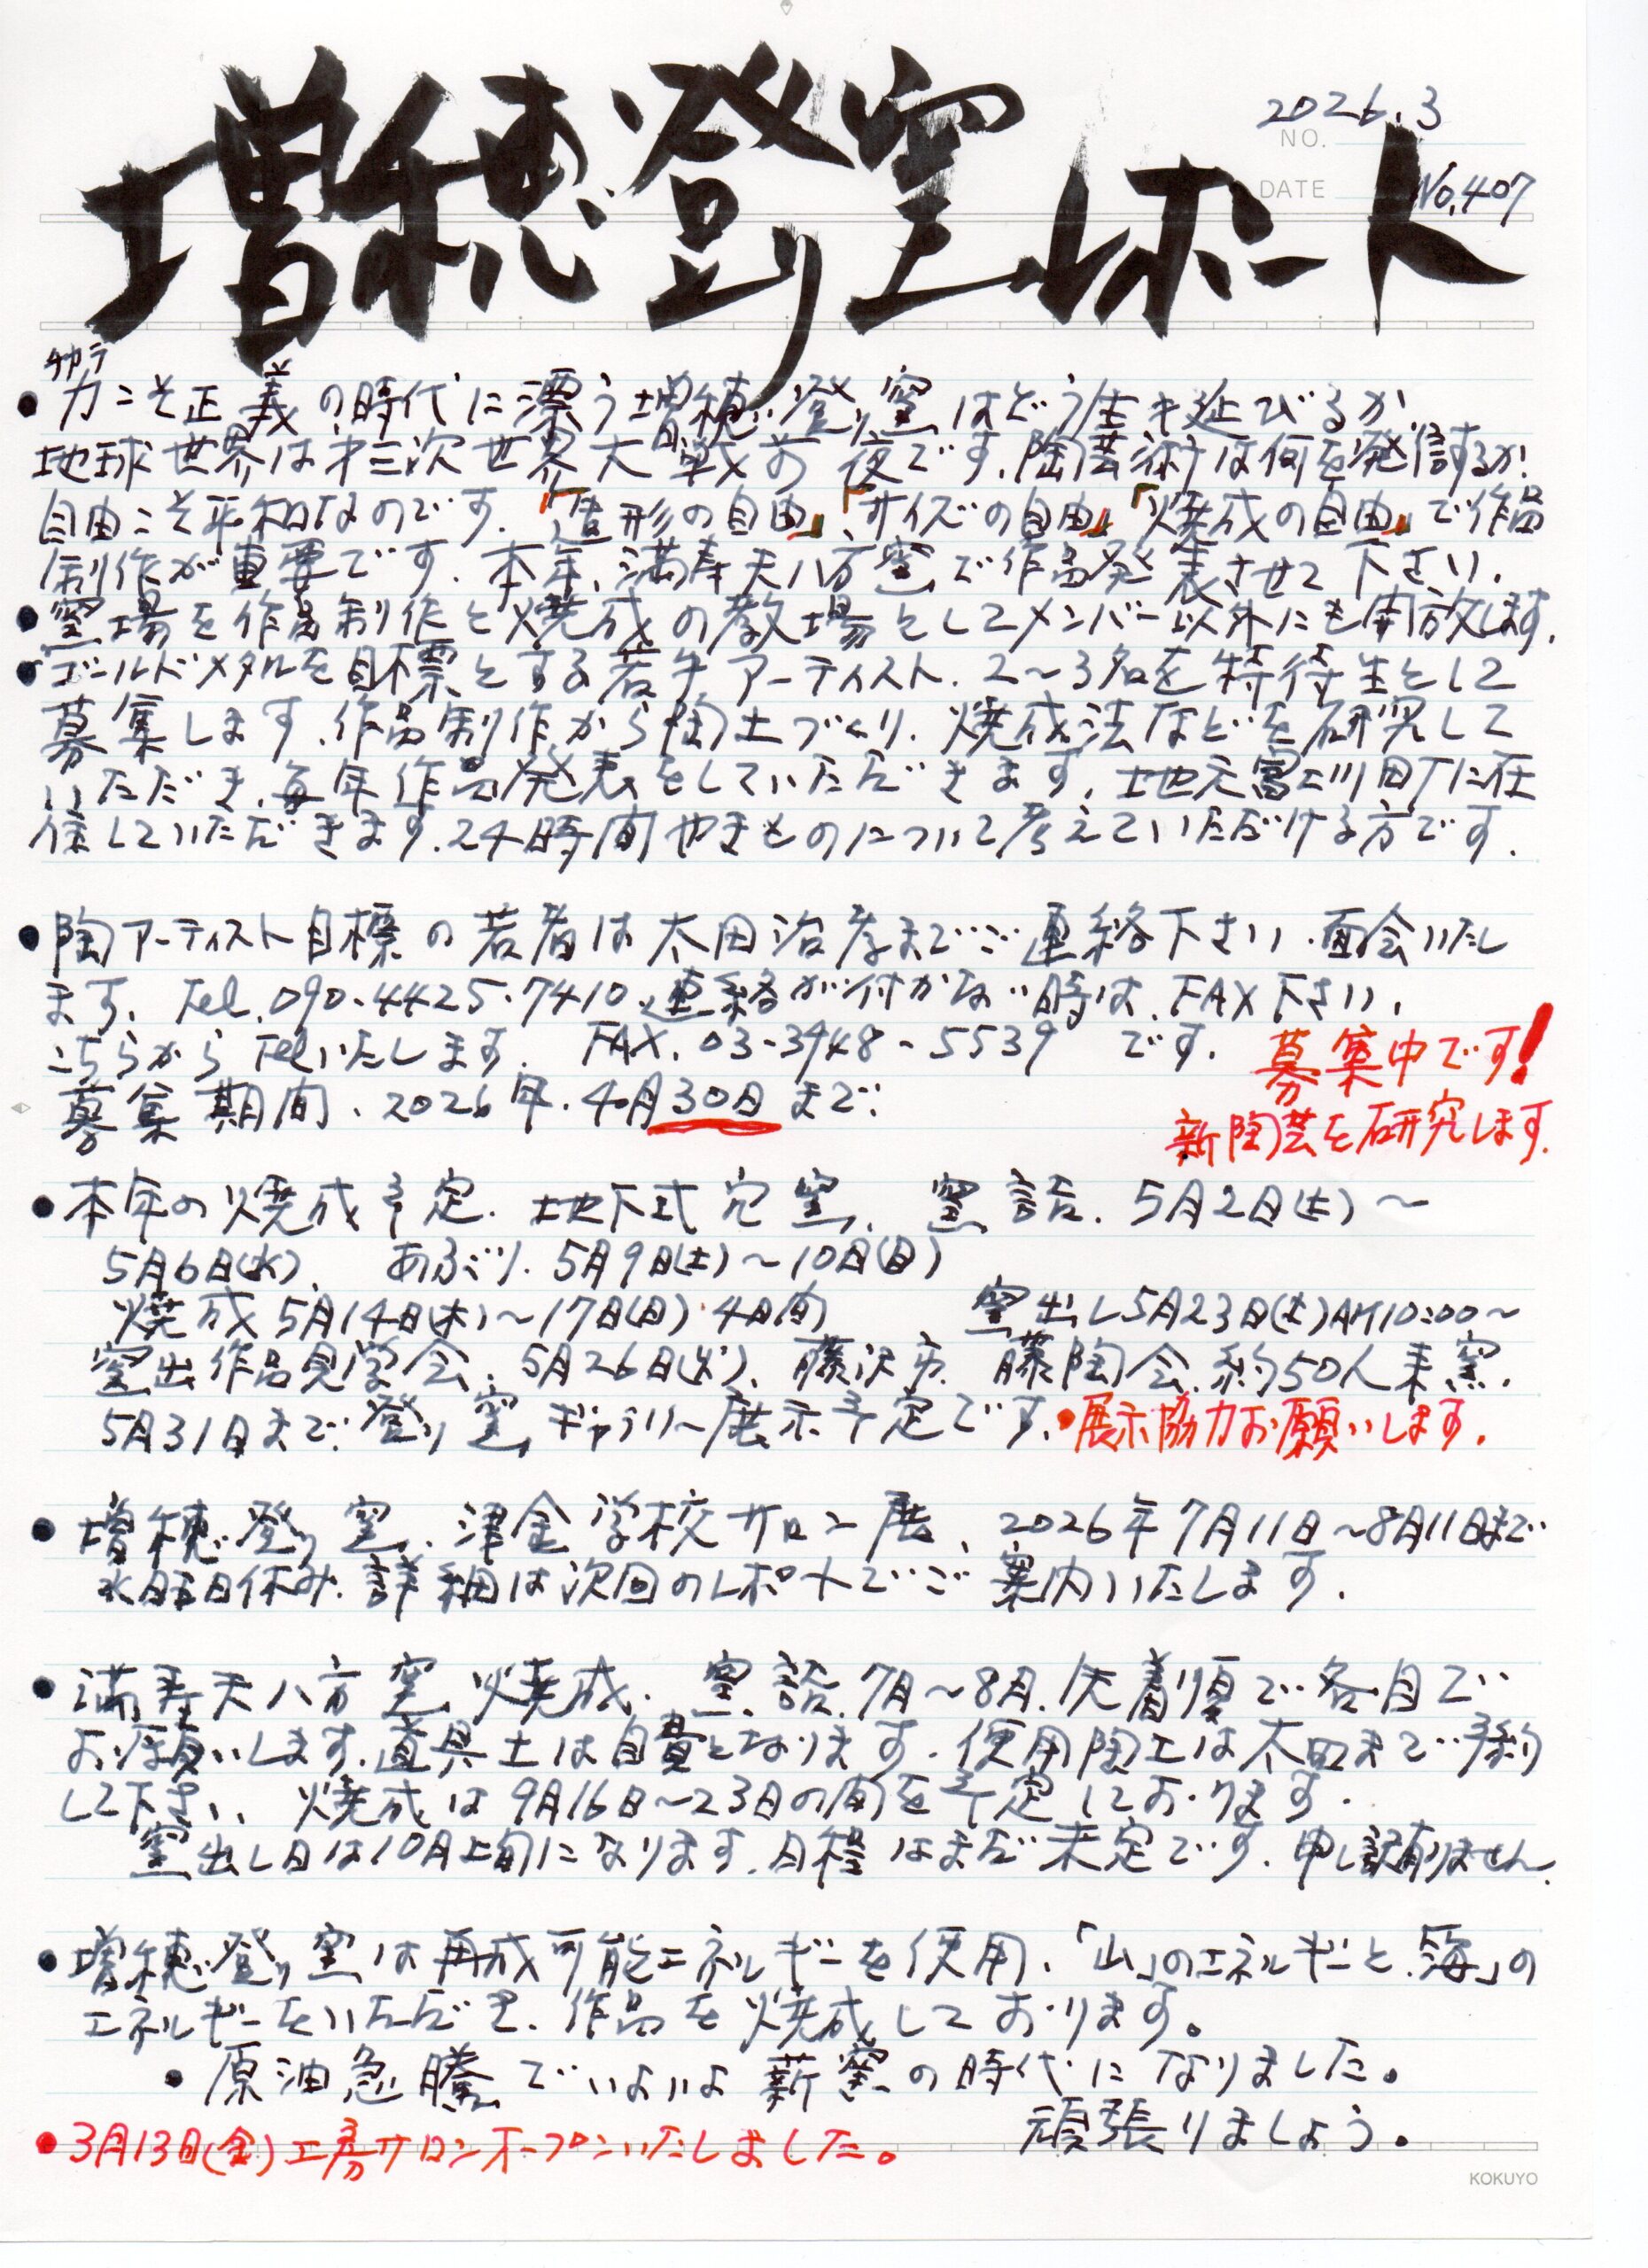 2026.3
NO.
DATE
No.407
増穂登り窯レポート
チカラ
• 力こそ正義の時代に漂う増穂登り窯はどう生き延びるか
地球世界は才三次世界大戦前夜です.陶芸術は何を発信するか!
自由こそ平和なのです.「造形の自由」「サイズの自由」「焼成の自由」で作品
制作が重要です.本年、満寿天八方窯で作品発表させて下さい.
• 窯場を作品制作と焼成の教場としてメンバー以外にも開放します.
• ゴールドメタルを目標とする若手アーティスト.2〜3名を特待生として
募集します.作品制作から陶土づくり.焼成法などを研究して
いただき、毎年作品発表をしていただきます.地元富士川町に在
住していただきます.24時間やきものについて考えていただける方です.
• 陶アーティスト目標の若者は太田治孝までご連絡下さい.面会いたし
ます. Tel.090.4425.7410、連絡が付かない時は.FAX下さい.
こちらからTelいたします. FAX.03-3948-5539 です.
募集中です!
募集期間、2026年.4月30日まで.
新陶芸を研究します.
• 本年の焼成予定.地下式穴窯、窯詰.5月2日(土)〜
5月6日(水)、あぶり.5月9日(土)〜10日(日)
焼成5月14日(木)〜17日(日)・4日間 窯出し5月23日(土)AM10:00〜
窯出作品見学会.5月26日(火)、藤沢市.藤陶会.約50人来窯.
5月31日まで.登り窯ギャラリー展示予定です.•展示協力お願いします.
• 増穂登り窯、津金学校サロン展、2026年7月11日〜8月11日まで
水曜日休み.詳細は次回のレポートでご案内いたします.
• 満寿天八方窯焼成.窯詰.7月〜8月.先着順で各自で
お願いします.道具土は自費となります.使用陶土は太田まで予約
して下さい、焼成は9月16日〜23日の間を予定しております.
窯出し日は10月上旬になります.日程はまだ未定です.申し訳有りません.
• 増穂登り窯は再成可能エネルギーを使用、「山」のエネルギーと「海」の
エネルギーをいただき、作品を焼成しております。
• 原油急騰でいよいよ薪窯の時代になりました。
頑張りましょう.
• 3月13日(金)工房サロンオープンいたしました。
KOKUYO